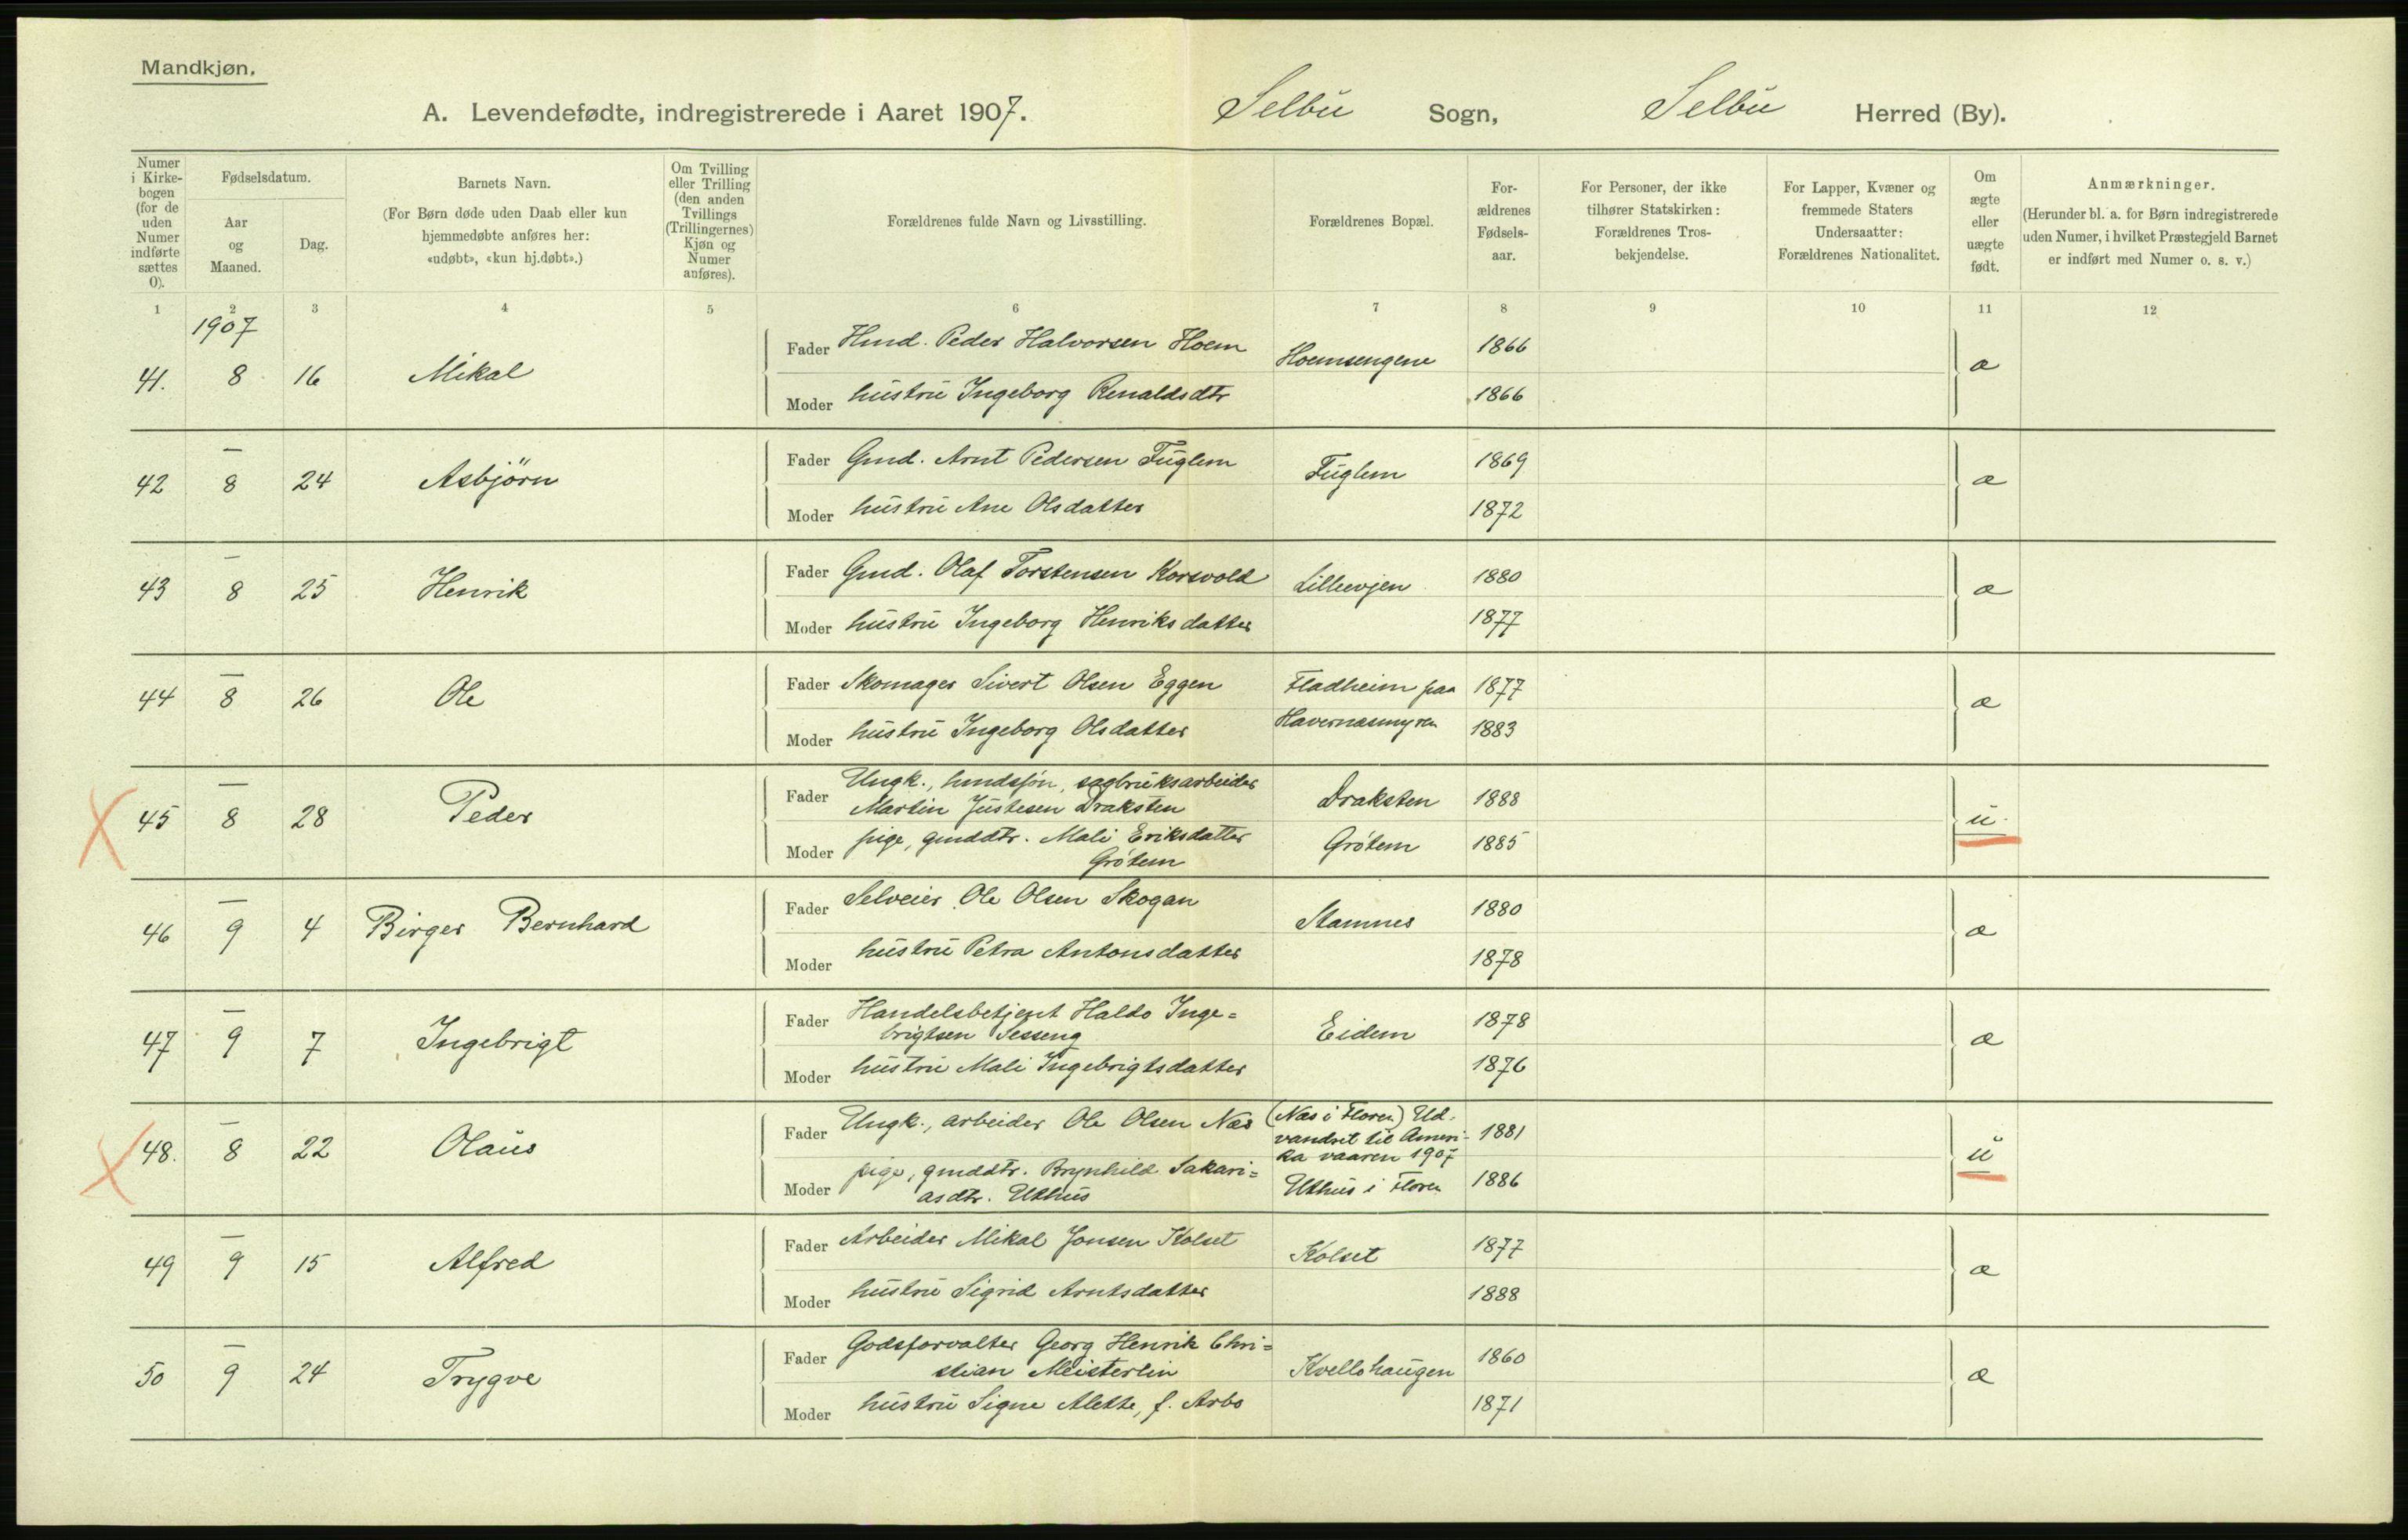 Mandkjøn.
A. Levendefødte, indregistrerede i Aaret 1907. Selbu Sogn, Selbu Herred (By).
Numer i Kirkebogen (for de uden Numer indførte sættes 0).
Fødselsdatum.
Aar og Maaned.
Dag.
Barnets Navn.
(For Børn døde uden Daab eller kun hjemmedøbte anføres her: «udøbt», «kun hj.døbt».)
Om Tvilling eller Trilling (den anden Tvillings (Trillingernes) Kjøn og Numer anføres).
Forældrenes fulde Navn og Livsstilling.
Forældrenes Bopæl.
Forældrenes Fødselsaar.
For Personer, der ikke tilhører Statskirken: Forældrenes Trosbekjendelse.
For Lapper, Kvæner og fremmede Staters Undersaatter: Forældrenes Nationalitet.
Om ægte eller uægte født.
Anmærkninger.
(Herunder bl. a. for Børn indregistrerede uden Numer, i hvilket Præstegjeld Barnet er indført med Numer o. s. v.)
1 2 3 4 5 6 7 8 9 10 11 12
1907
41. 8 16 Mikal
Fader Hmd. Peder Halvorsen Hoem Hoemsengene 1866 æ
Moder hustru Ingeborg Renaldsdtr 1866
42 – 8 24 Asbjörn
Fader Gmd. Arnt Pedersen Fuglem Fuglem 1869 æ
Moder hustru Ane Olsdatter 1872
43 – 8 25 Henrik
Fader Gmd. Olaf Torstensen Korsvold Lilleevjen 1880 æ
Moder hustru Ingeborg Henriksdatter 1877
44 – 8 26 Ole
Fader Skomager Sivert Olsen Eggen Fladheim paa 1877 æ
Moder hustru Ingeborg Olsdatter Havernæsmyren 1883
X 45 – 8 28 Peder
Fader Ungk., hmdsön, sagbruksarbeider
Martin Justesen Draksten Draksten 1888 u.
Moder pige, gmddtr. Mali Eriksdatter
Grötem Grötem 1885
46 – 9 4 Birger Bernhard
Fader Selveier Ole Olsen Skogan Stamnes 1880 æ
Moder hustru Petra Antonsdatter 1878
47 – 9 7 Ingebrigt
Fader Handelsbetjent Haldo Inge=
brigtsen Sesseng Eidem 1878 æ
Moder hustru Mali Ingebrigtsdatter 1876
X 48. – 8 22 Olaus
Fader Ungk., arbeider Ole Olsen Næs (Næs i Floren) Ud-
vandret til Ameri- 1881
ka vaaren 1907 u
Moder pige, gmddtr. Brynhild Sakari=
asdtr. Uthus Uthus i Floren 1886
49 – 9 15 Alfred
Fader Arbeider Mikal Jonsen Kolset Kolset 1877 æ
Moder hustru Sigrid Arntsdatter 1888
50 – 9 24 Trygve
Fader Godsforvalter Georg Henrik Chri=
stian Meisterlin Kvellohaugen 1860 æ
Moder hustru Signe Alette, f. Arbo 1871